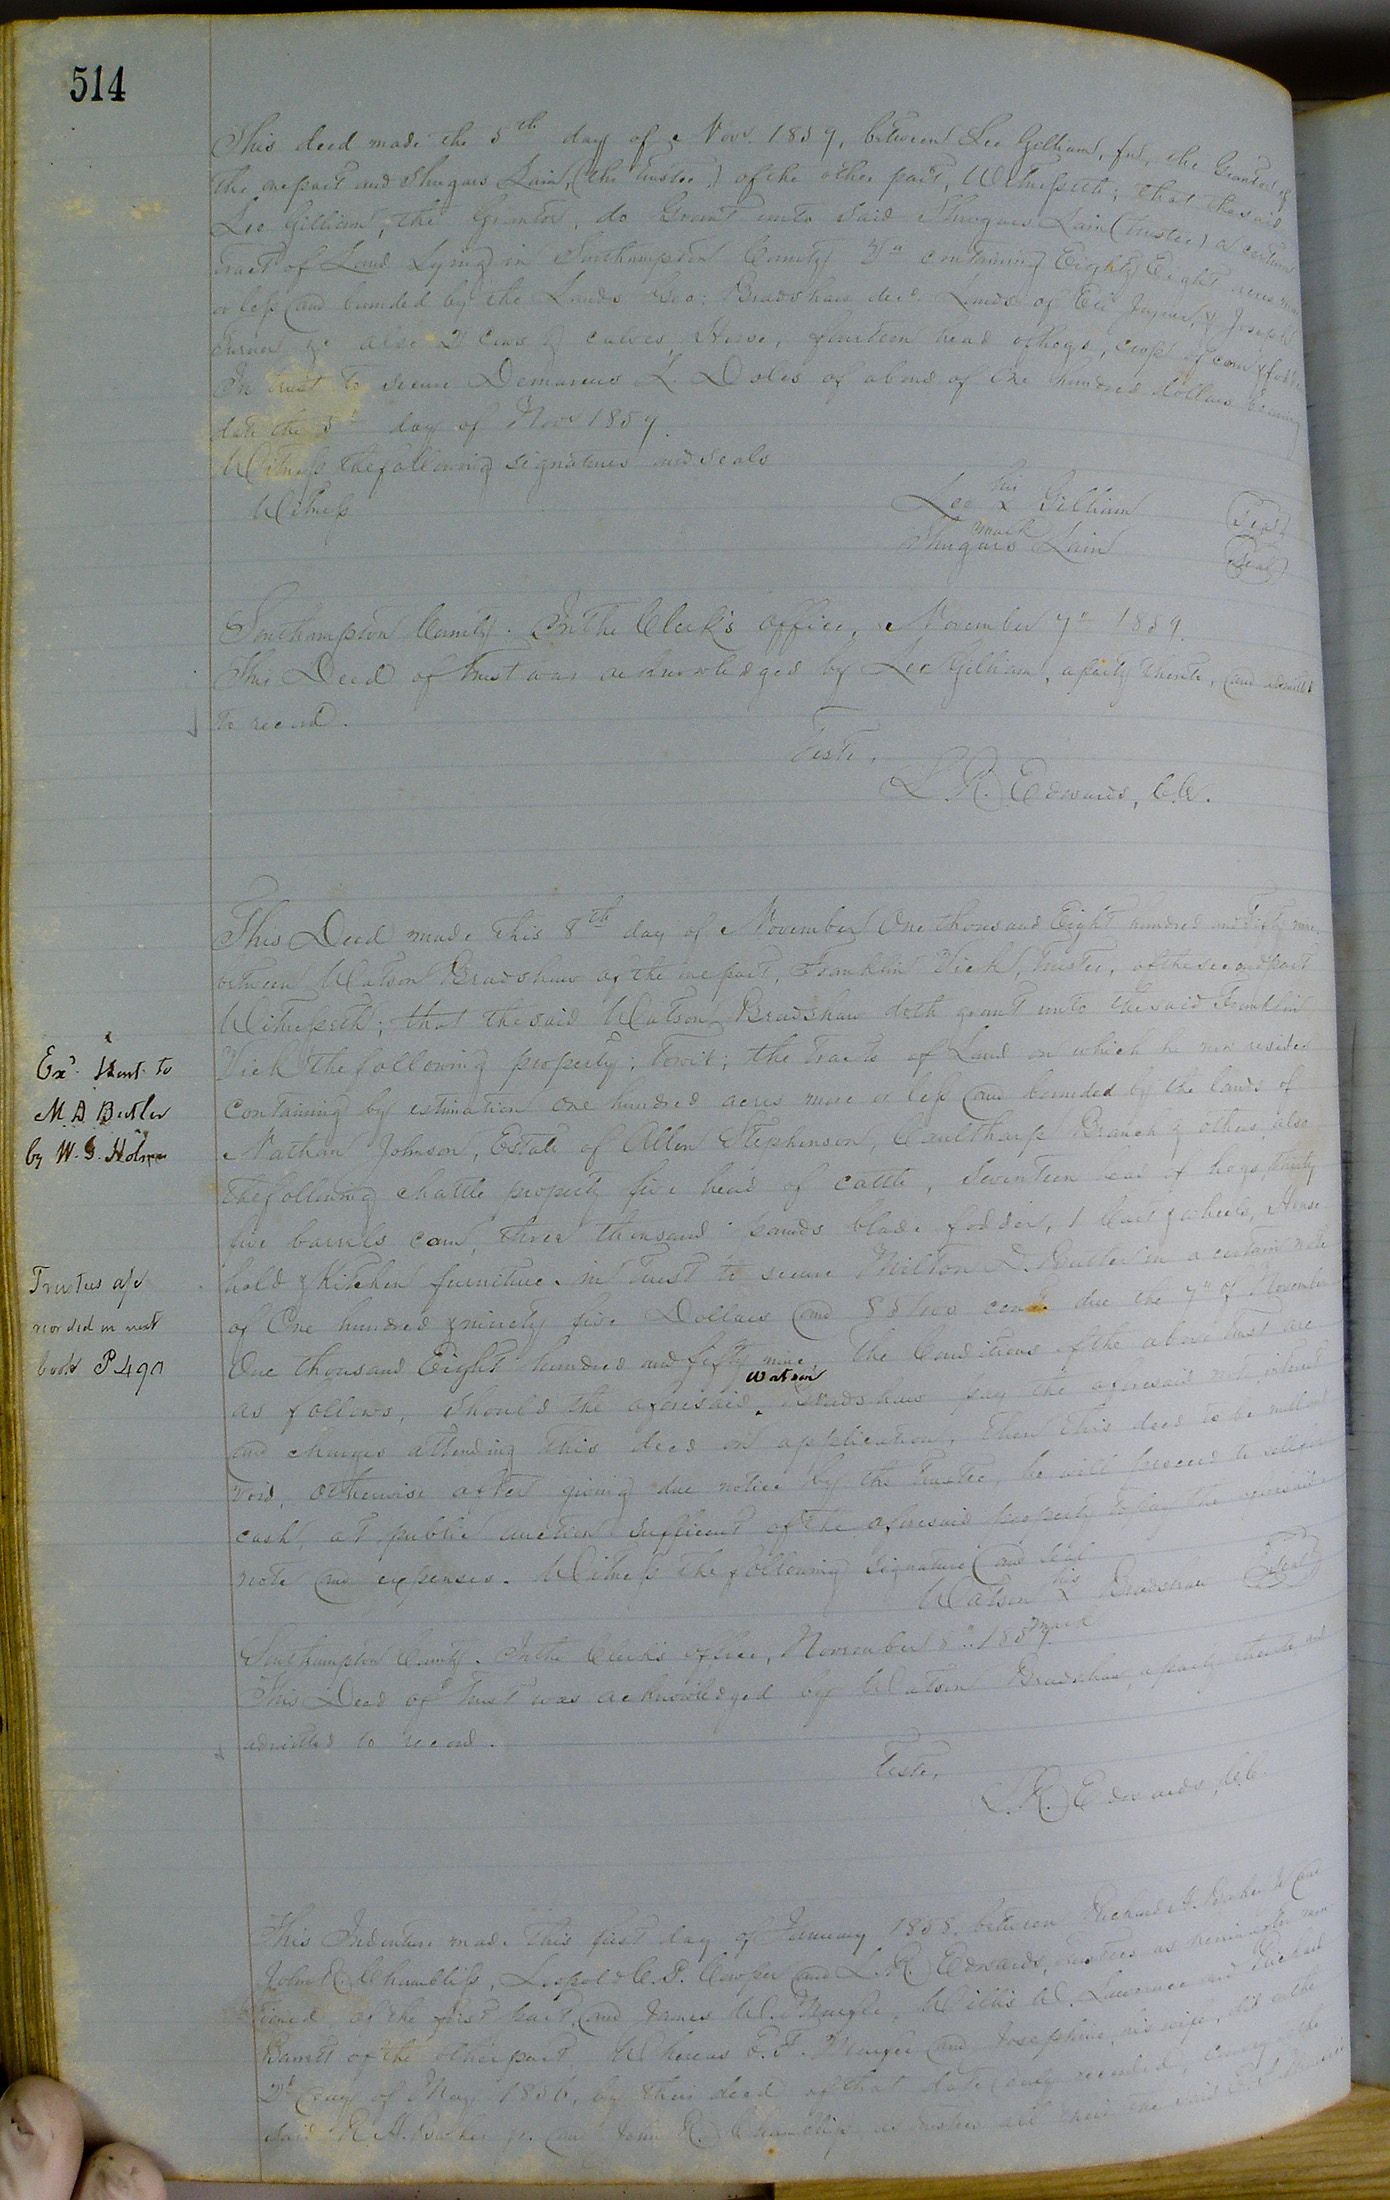 514
This deed made the 5th day of Nov. 1859, between Lee Gilliam, fn, the Grantor of
the one part and Shugars Lain, (the Trustee) of the other part, Witnesseth; that the said
Lee Gilliam, the Grantor, do Grant unto said Shugars Lain (trustee) a certain
tract of Land Lying in Southampton County Va containing Eighty Eight acres more
or less and bounded by the Lands Geo: Bradshaw decd. Lands of Joyner, & Joseph
Turner, &c also 2 Cows & calves, Horse, fourteen head of hogs, crop of corn & fodder
In trust to secure Demarcus L. Doles of a bond of One hundred dollars bearing
date the 5th day of Nov 1859.
Witness the following signatures and seals
Witness
Lee his x mark Gilliam (Seal)
Shugars Lain (Seal)
Southampton County. In the Clerk's office, November 7th 1859.
This Deed of Trust was acknowledged by Lee Gilliam, a party thereto, and admitted
to record.
Teste,
L. R. Edwards, C.C.
This Deed made this 8th day of November One thousand Eight hundred and Fifty nine.
between Watson Bradshaw of the one part, Franklin Vick, Trustee, of the second part
Witnesseth; that the said Watson Bradshaw doth grant unto the said Franklin
Vick the following property; Towit; the Tracts of Land on which he now resides
containing by estimation one hundred acres more or less and bounded by the lands of
Nathan Johnson, Estate of Allen Stephenson, Branch & others, also
the following chattle property five head of cattle, Seventeen head of hogs, thirty
five barrels corn, three thousand pounds blade fodder, 1 Cart & wheels, House
hold & Kitchen furniture. in Trust to secure Milton D. Butler in a certain note
of One hundred & ninety five Dollars and 85/100 cents due the 7th of November
One thousand Eight hundred and fifty nine. The Conditions of the above Trust are
as follows, Should the aforesaid Watson Bradshaw pay the aforesaid note, interest
and charges attending this deed on application, then this deed to be null and
void, otherwise after giving due notice by the Trustee, he will proceed to sell for
cash, at public auction sufficient of the aforesaid property to pay the aforesaid
note and expenses. Witness the following signature and seal
Watson his x mark Bradshaw (Seal)
Southampton County. In the Clerk's office, November 8th 1859.
This Deed of Trust was acknowledged by Watson Bradshaw, a party thereto and
admitted to record.
Teste,
L. R. Edwards, C.C.
This Indenture made This first day of January 1858, between Richard H. Barker and
John R. Chambliss, Leopold C. P. Cowper and L. R. Edwards, Trustees as hereinafter men
tioned, of the first part, and James W. Murfee, Willis W. Lawrence and Richard
Barrett of the other part. Whereas E. T. Murfee and Josephine, his wife, did on the
2d day of May 1856, by their deed of that date duly recorded, convey to the
said R. H. Barker jr. and John R. Chambliss, as trustees all
Exd. & sent to
M. D. Butler
by W. J. Holmes
Trustees a/c
recorded in next
book P 490